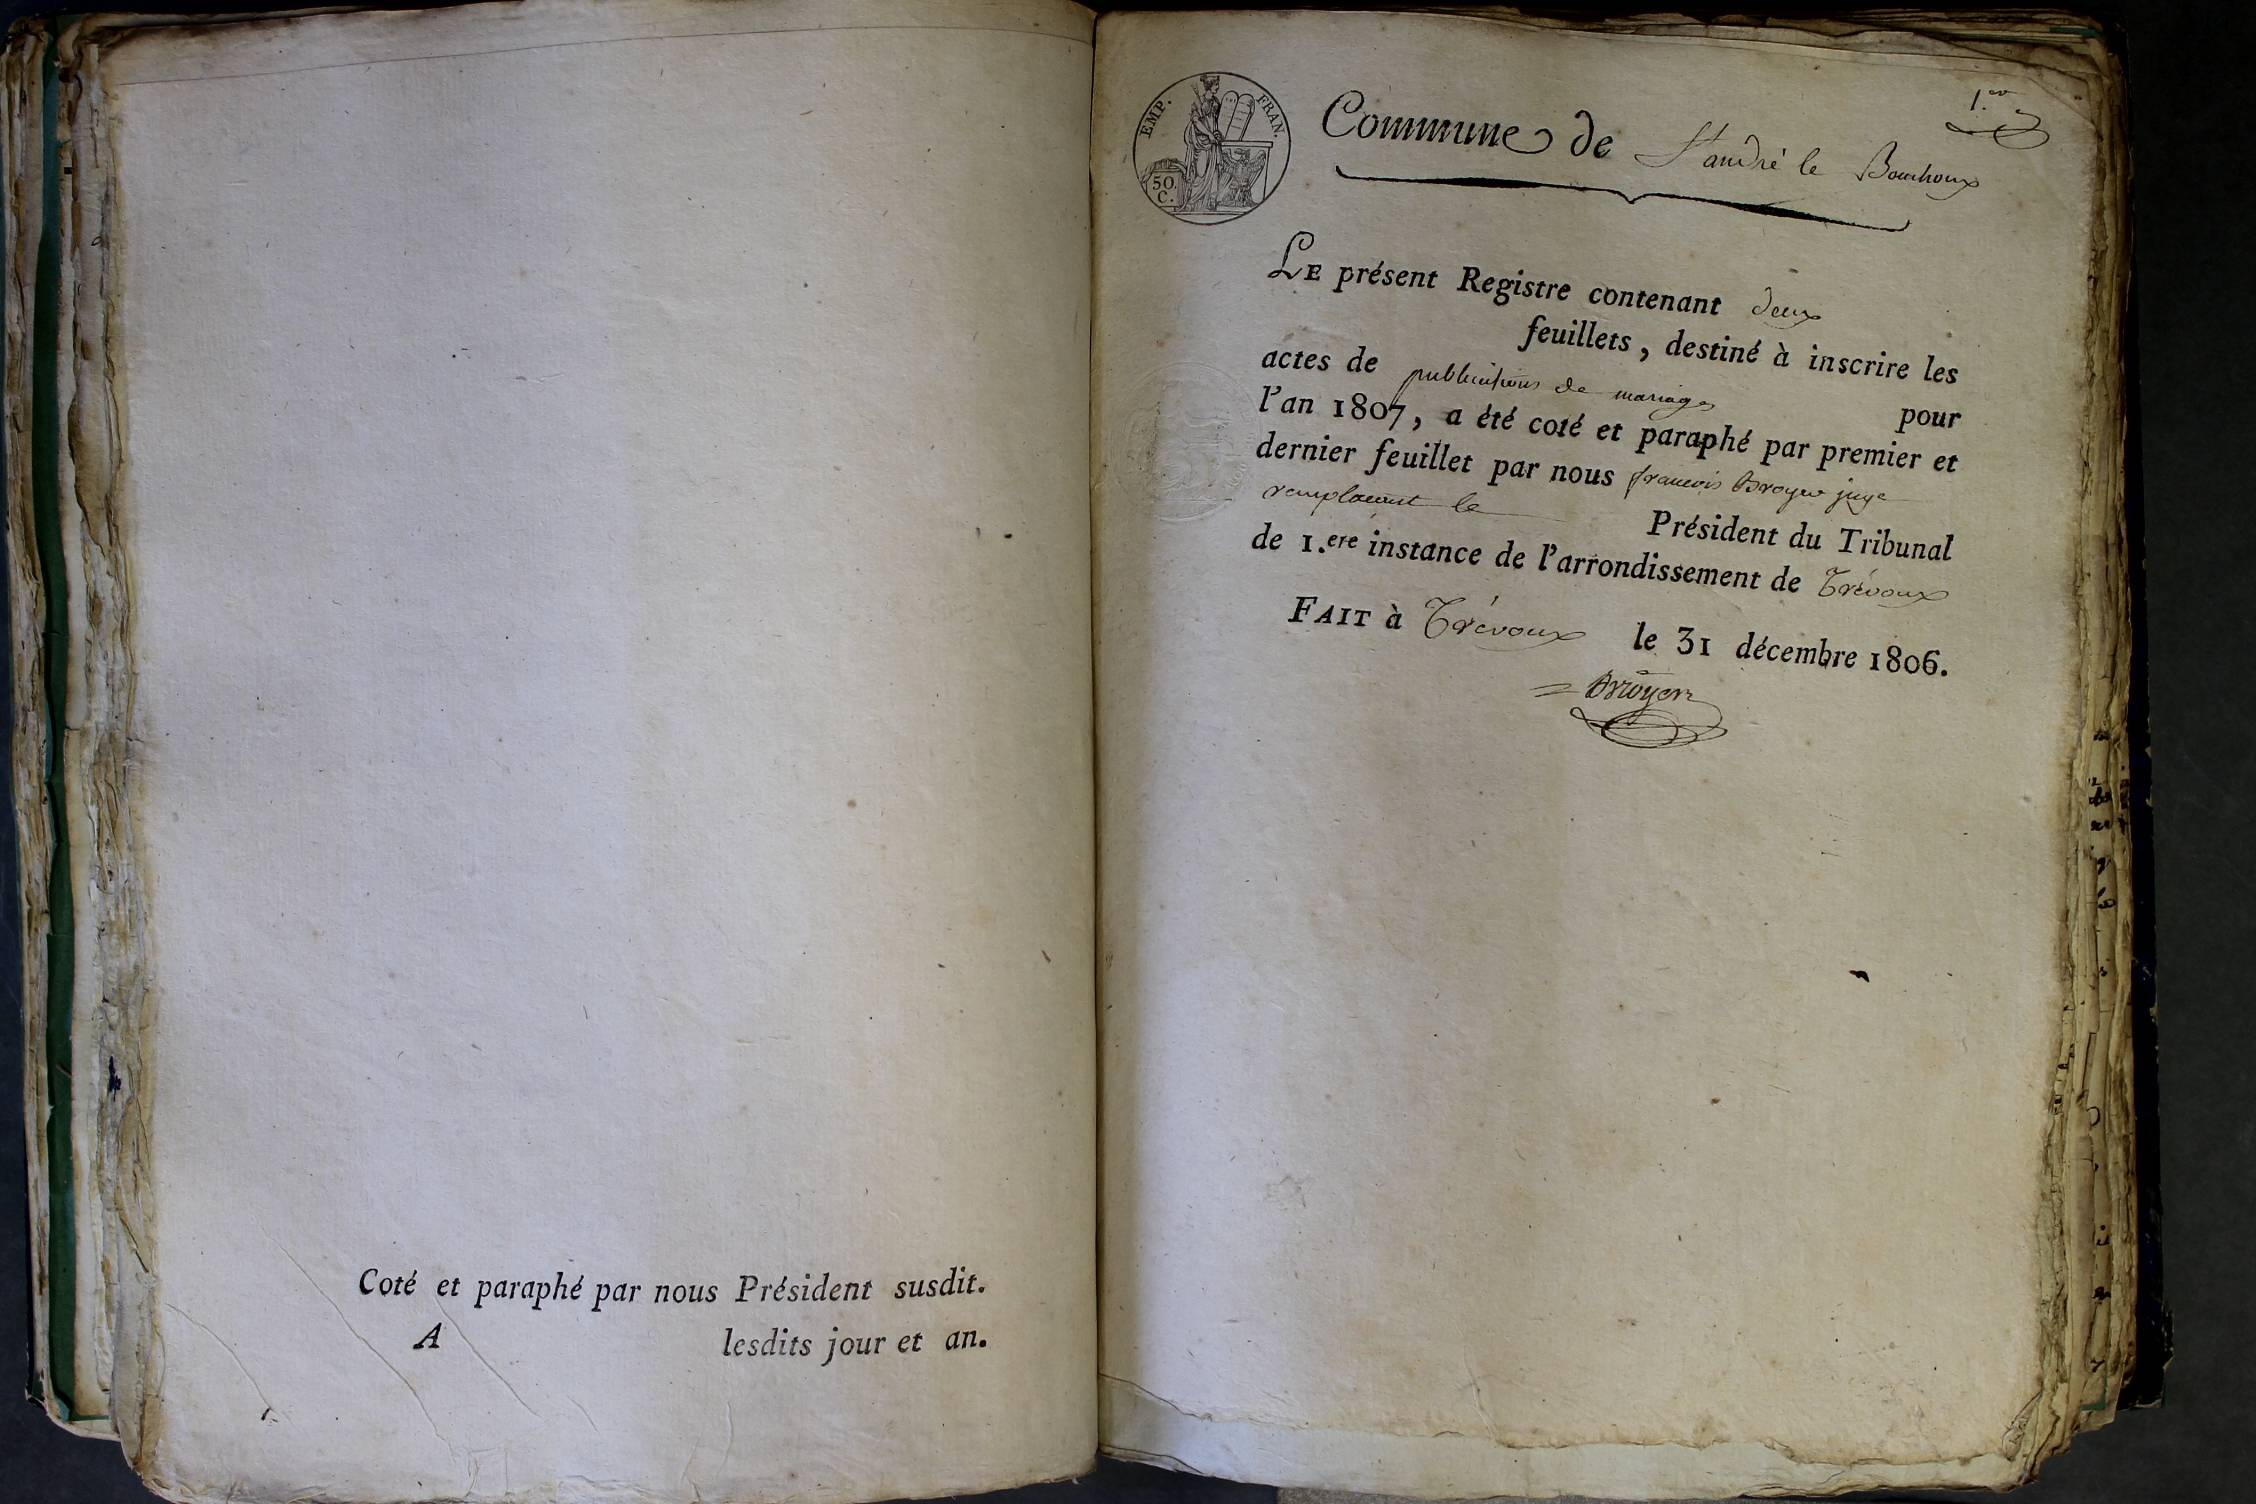 Coté et paraphé par nous Président susdit.
A lesdits jour et an.
EMP. FRAN.
50.
C.
1.er
Commune de St andré le Bouchoux
LE présent Registre contenant deux
feuillets, destiné à inscrire les
actes de publications de mariages pour
l'an 1807, a été coté et paraphé par premier et
dernier feuillet par nous francois Broyer juge
remplacant le Président du Tribunal
de 1.ere instance de l'arrondissement de Trévoux
FAIT à Trévoux le 31 décembre 1806.
Broyer